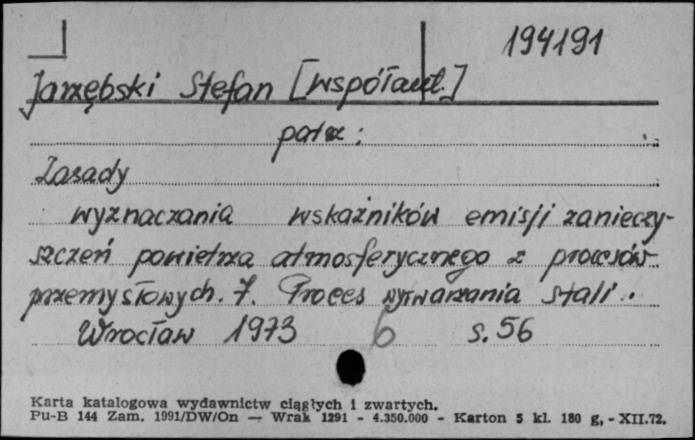 194191
Jarzębski Stefan [współaut.]
patrz:
Zasady
wyznaczania wskaźników emisji zanieczy-
szczeń powietrza atmosferycznego z procesów
przemysłowych. 7. Proces wytwarzania stali.
Wrocław 1973 6 s. 56
Karta katalogowa wydawnictw ciągłych i zwartych.
Pu-B 144 Zam. 1991/DW/On — Wrak 1291 - 4.350.000 - Karton 5 kl. 180 g. - XII.72.